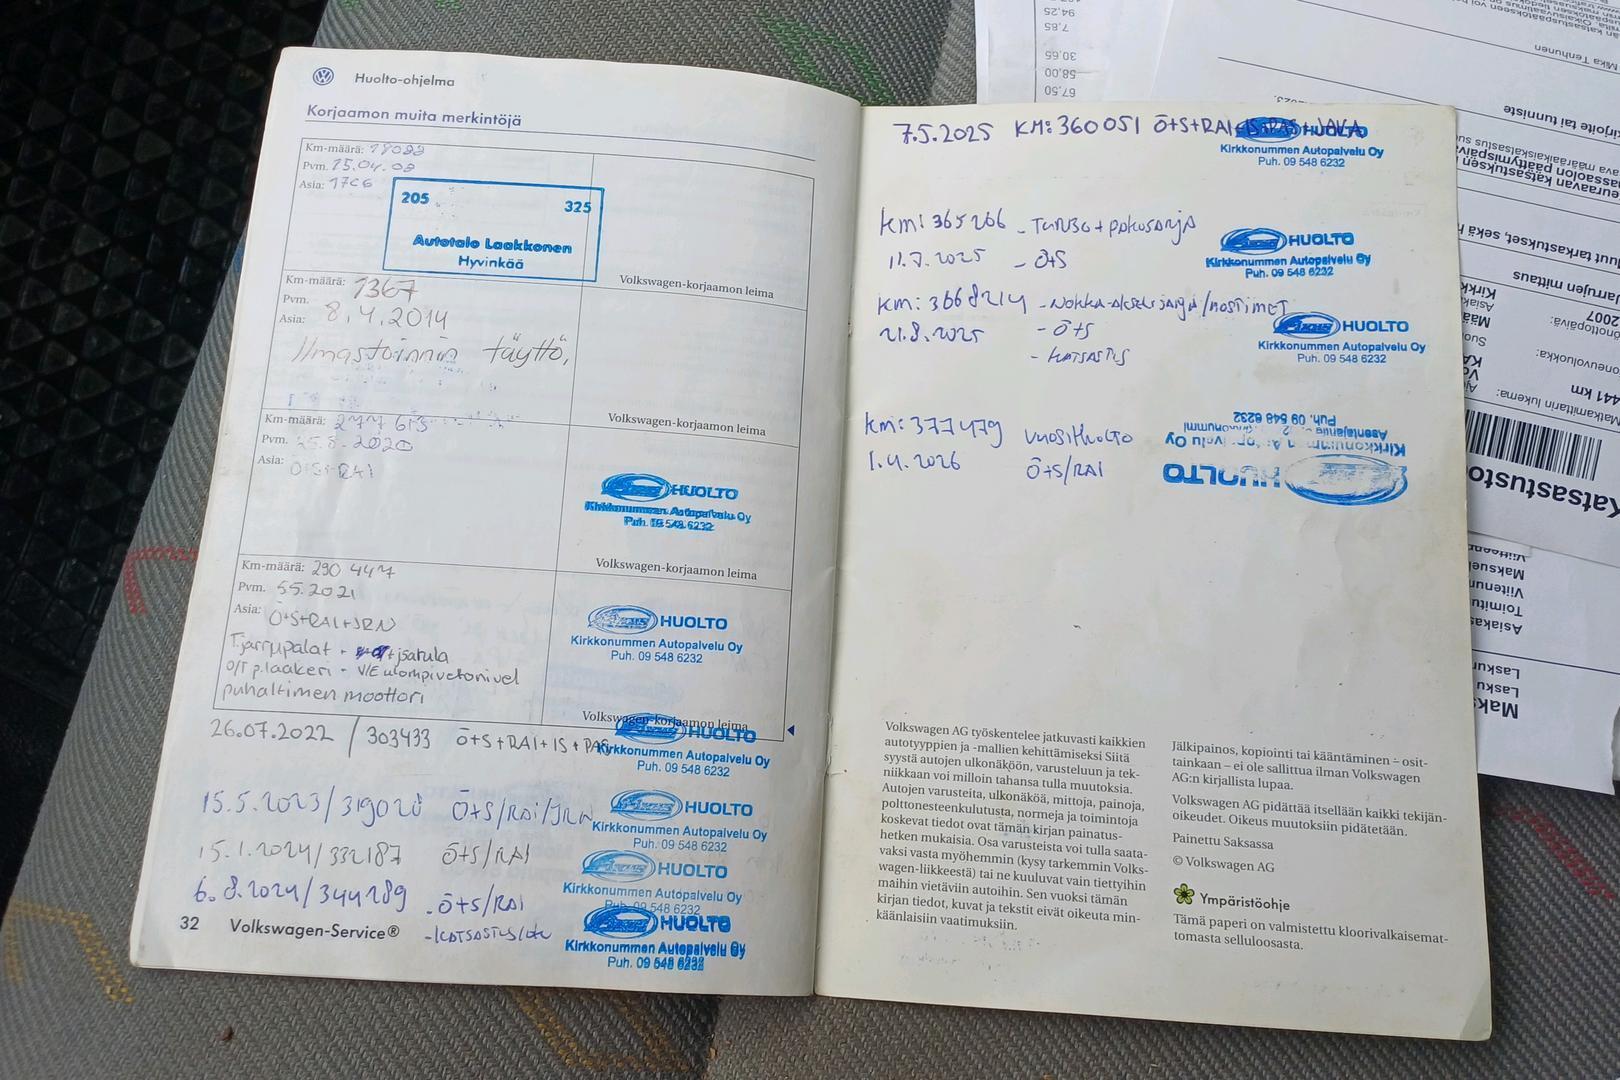 Huolto-ohjelma
Korjaamon muita merkintöjä
Km-määrä:
Pvm. 15.04.08
Asia: 17C6
205 325
Autotalo Laakkonen
Hyvinkää
Volkswagen-korjaamon leima
Km-määrä: 1367
Pvm. 8.4.2014
Asia:
Ilmastoinnin täyttö.
Volkswagen-korjaamon leima
Km-määrä: 277 613
Pvm. 25.8.2020
Asia: Ö+S+RAI
HUOLTO
Kirkkonummen Autopalvelu Oy
Puh. 09 548 6232
Volkswagen-korjaamon leima
Km-määrä: 290 447
Pvm. 5.5.2021
Asia: Ö+S+RAI+JRN
Tjarrupalat - + jsatula
O/T p.laakeri - V/E ulompi vetonivel
puhaltimen moottori
HUOLTO
Kirkkonummen Autopalvelu Oy
Puh. 09 548 6232
Volkswagen-korjaamon leima
26.07.2022 / 303433 Ö+S+RAI+IS+PAS
HUOLTO
Kirkkonummen Autopalvelu Oy
Puh. 09 548 6232
15.5.2023/319020 Ö+S/RAI/JRN
HUOLTO
Kirkkonummen Autopalvelu Oy
Puh. 09 548 6232
15.1.2024/332187 Ö+S/RAI
HUOLTO
Kirkkonummen Autopalvelu Oy
Puh. 09 548 6232
6.8.2024/344289 - Ö+S/RAI
- KATSASTUS/
HUOLTO
Kirkkonummen Autopalvelu Oy
Puh. 09 548 6232
32 Volkswagen-Service®
7.5.2025 KM: 360051 Ö+S+RAI+IS+PAS+JAVA
Kirkkonummen Autopalvelu Oy
Puh. 09 548 6232
KM: 365266 - Turbo + pakosarja
11.7.2025 - Ö+S
HUOLTO
Kirkkonummen Autopalvelu Oy
Puh. 09 548 6232
KM: 368214 - Nokka-akseli sarja/nostimet
21.8.2025 - Ö+S
- KATSASTUS
HUOLTO
Kirkkonummen Autopalvelu Oy
Puh. 09 548 6232
KM: 377479 Vuosihuolto
1.4.2026 Ö+S/RAI
HUOLTO
Kirkkonummen Autopalvelu Oy
Asentajantie
Puh. 09 548 6232
Volkswagen AG työskentelee jatkuvasti kaikkien
autotyyppien ja -mallien kehittämiseksi Siitä
syystä autojen ulkonäköön, varusteluun ja tek-
niikkaan voi milloin tahansa tulla muutoksia.
Autojen varusteita, ulkonäköä, mittoja, painoja,
polttonesteenkulutusta, normeja ja toimintoja
koskevat tiedot ovat tämän kirjan painatus-
hetken mukaisia. Osa varusteista voi tulla saata-
vaksi vasta myöhemmin (kysy tarkemmin Volks-
wagen-liikkeestä) tai ne kuuluvat vain tiettyihin
maihin vietäviin autoihin. Sen vuoksi tämän
kirjan tiedot, kuvat ja tekstit eivät oikeuta min-
käänlaisiin vaatimuksiin.
Jälkipainos, kopiointi tai kääntäminen – osit-
tainkaan – ei ole sallittua ilman Volkswagen
AG:n kirjallista lupaa.
Volkswagen AG pidättää itsellään kaikki tekijän-
oikeudet. Oikeus muutoksiin pidätetään.
Painettu Saksassa
© Volkswagen AG
Ympäristöohje
Tämä paperi on valmistettu kloorivalkaisemat-
tomasta selluloosasta.
94,25
7,85
30,65
58,00
67,50
Mika Tenhunen
Jarrujen mittaus
Matkamittarin lukema:
441 km
Katsastusto
Viitteen
Maksuel
Viitenu
Toimitu
Asiakas
Laskun
Lasku
Maks